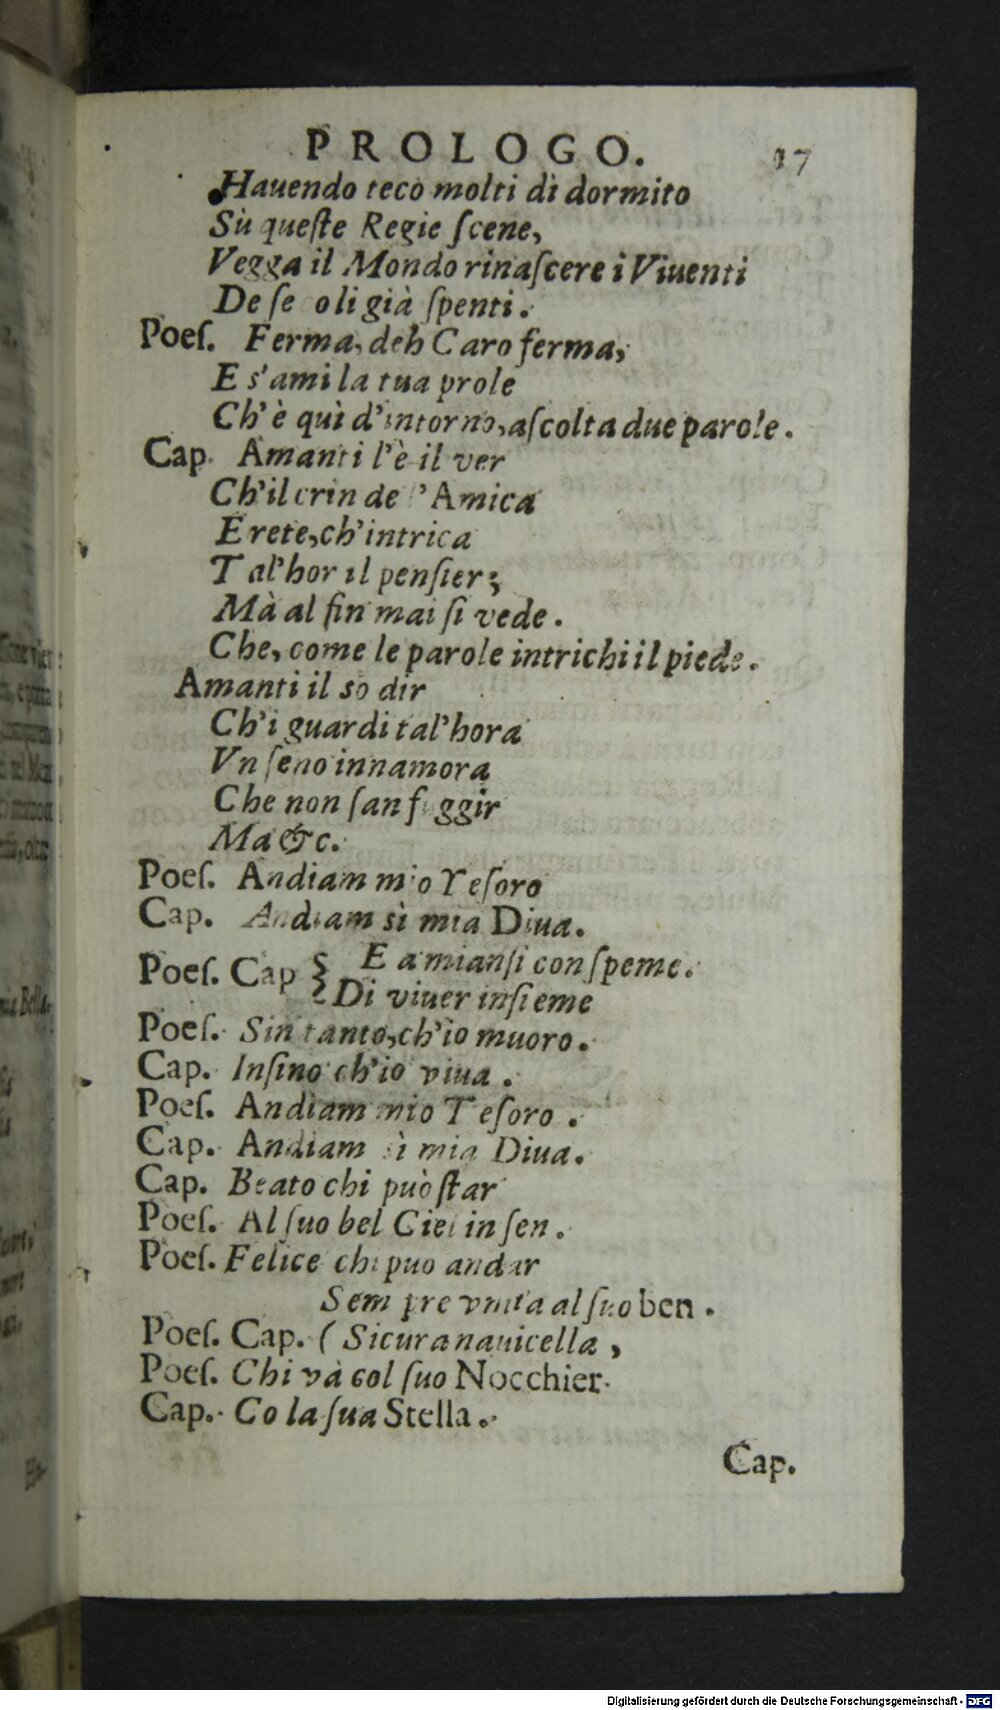 PROLOGO. 17
Hauendo teco molti dì dormito
Sù queſte Regie ſcene,
Vegga il Mondo rinaſcere i Viuenti
De ſe oli già ſpenti.
Poeſ. Ferma, deh Caro ferma,
E s'ami la tua prole
Ch'è quì d'intorno, aſcolta due parole.
Cap. Amanti l'è il ver
Ch'il crin de l'Amica
E rete, ch'intrica
Tal'hor il penſier;
Mà al fin mai ſi vede.
Che, come le parole intrichi il piede.
Amanti il so dir
Ch'i guardi tal'hora
Vn ſeno innamora
Che non ſan f ggir
Ma &c.
Poeſ. Andiam mio Teſoro
Cap. Andiam sì mia Diua.
Poeſ. Cap } E amianſi con ſpeme.
Di viuer inſieme
Poeſ. Sin tanto, ch'io muoro.
Cap. Inſino ch'io viua.
Poeſ. Andiam mio Teſoro.
Cap. Andiam sì mia Diua.
Cap. Beato chi può ſtar
Poeſ. Al ſuo bel Ciel in ſen.
Poeſ. Felice chi puo andar
Sempre vnita al ſuo ben.
Poeſ. Cap. ( Sicura nauicella,
Poeſ. Chi và col ſuo Nocchier.
Cap. Co la ſua Stella.
Cap.
Digitalisierung gefördert durch die Deutsche Forschungsgemeinschaft - DFG